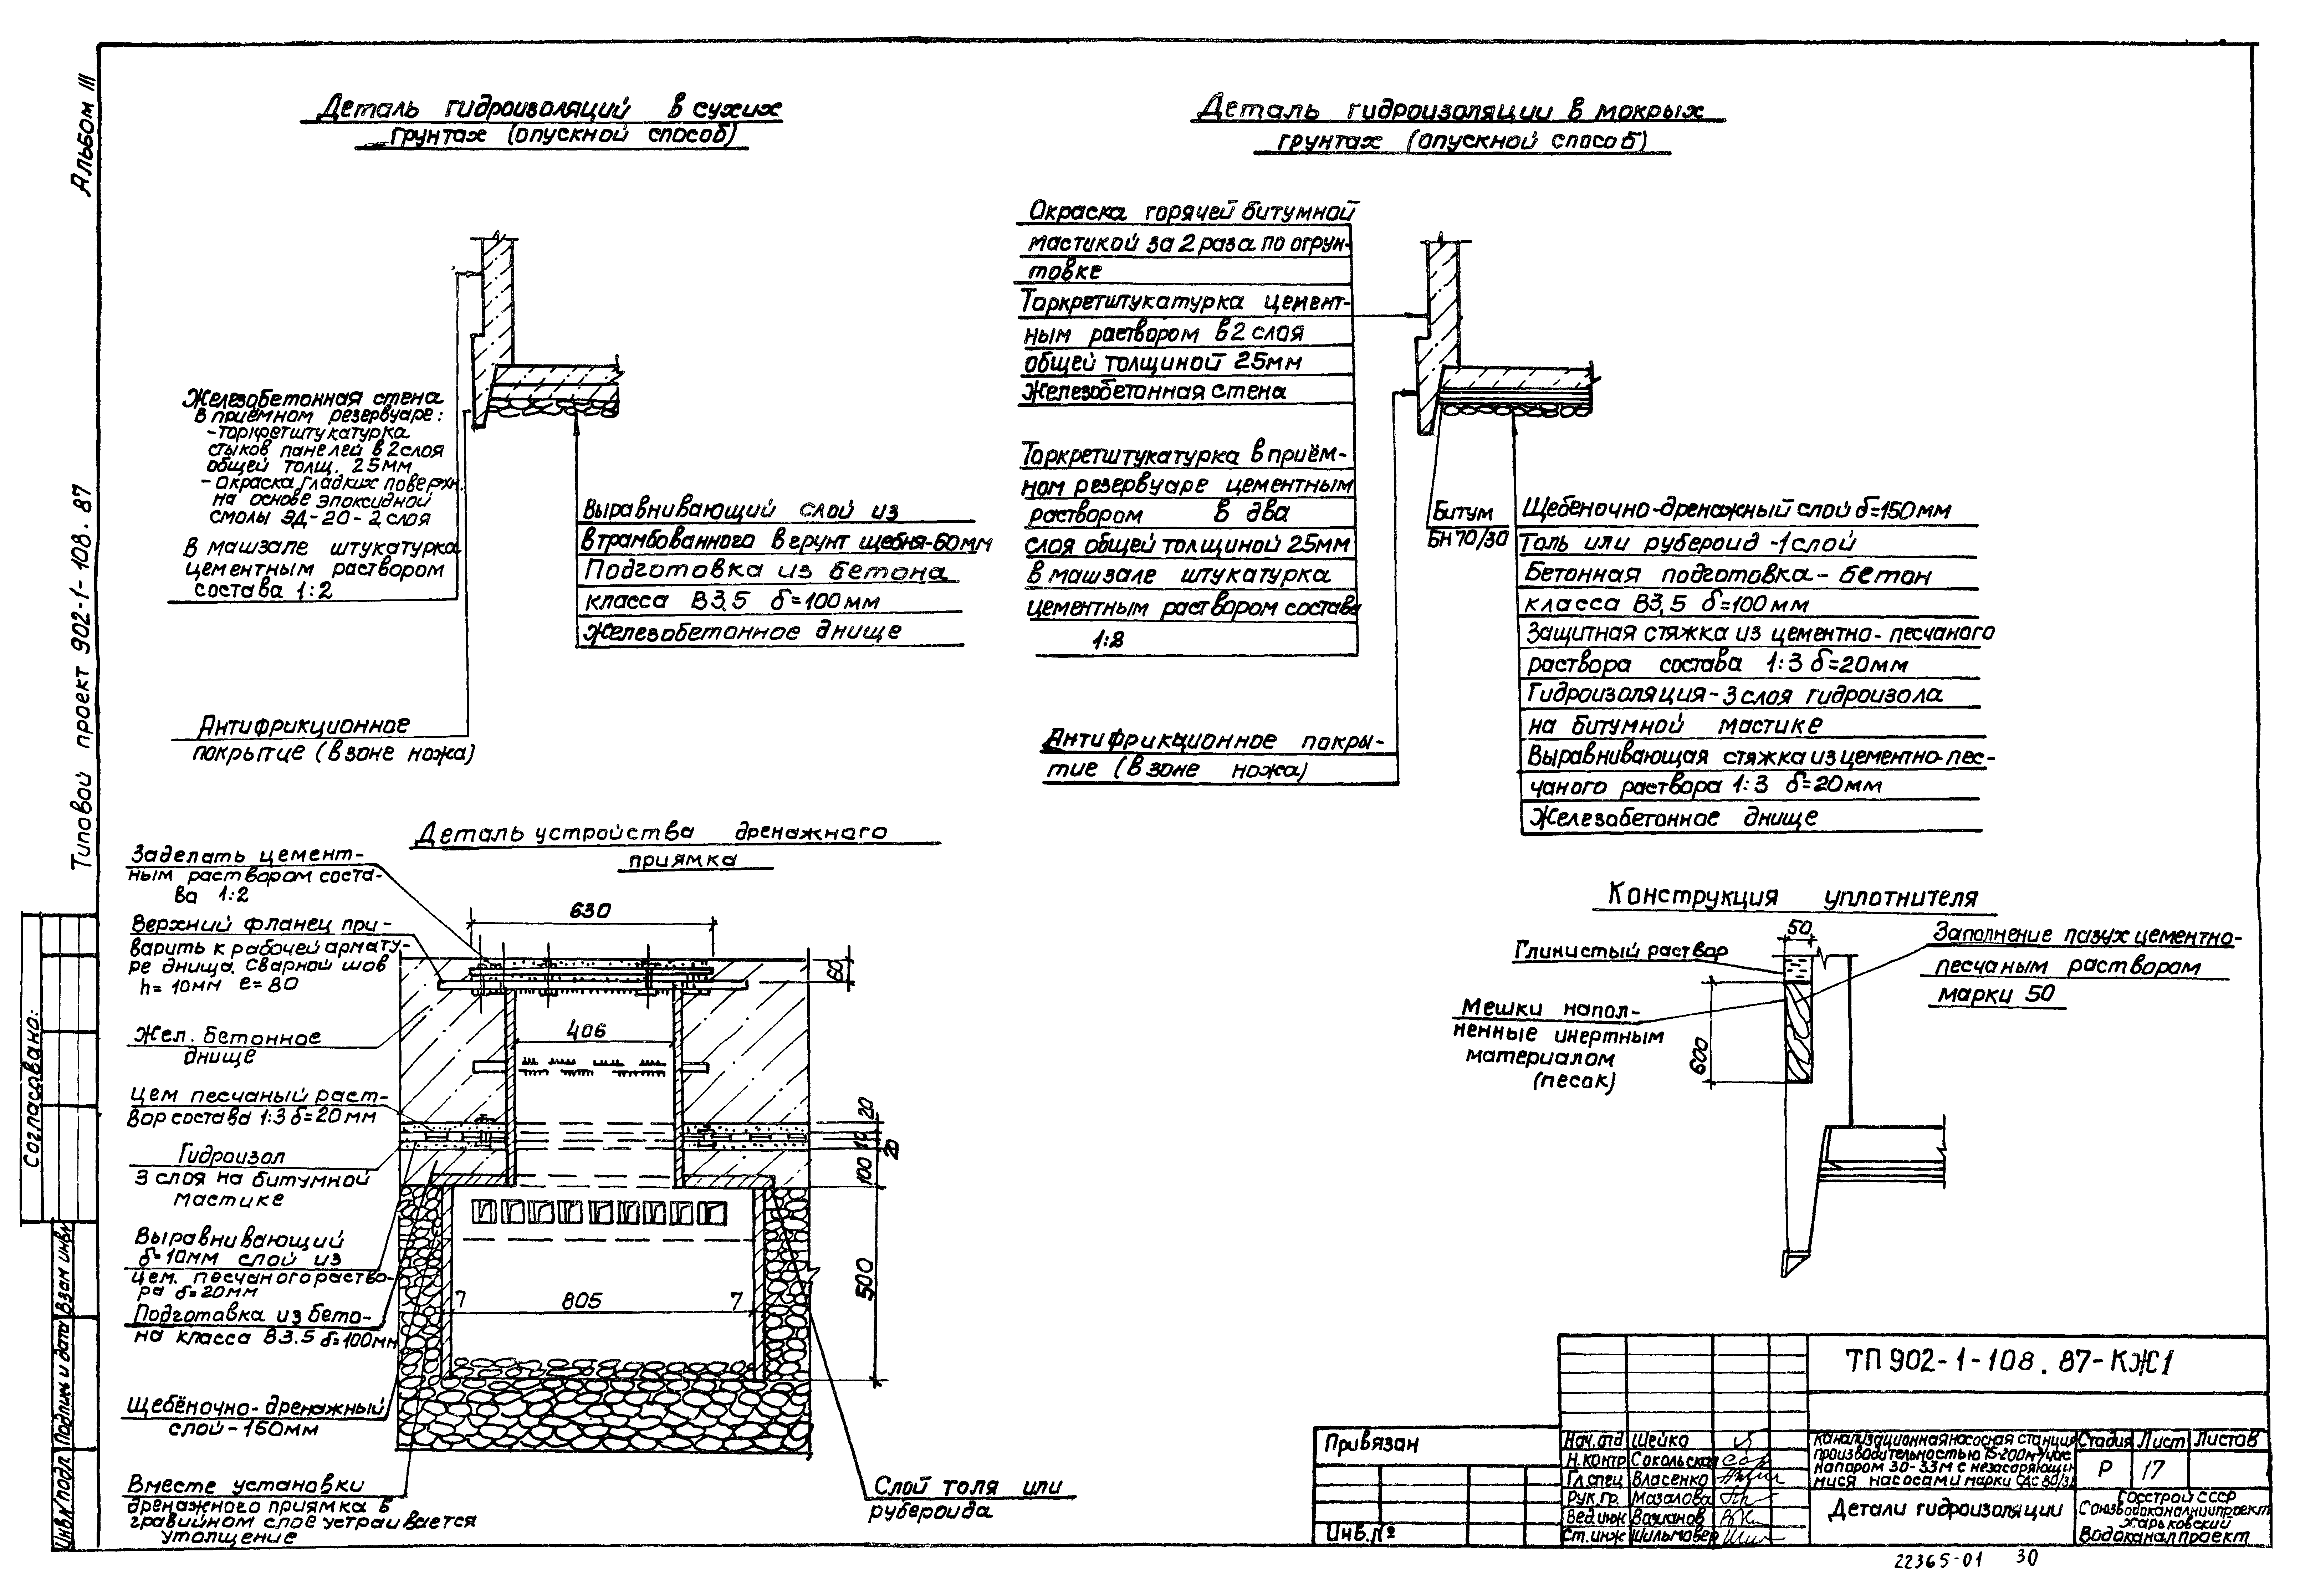 Альбом III
Типовой проект 902-1-108.87
Согласовано:
Взам инв.
Подпись и дата
Инв.№ подл.
Деталь гидроизоляций в сухих
грунтах (опускной способ)
Железобетонная стена
в приёмном резервуаре:
-торкретштукатурка
стыков панелей в 2 слоя
общей толщ. 25мм
- окраска гладких поверхн.
на основе эпоксидной
смолы ЭД-20-2 слоя
В машзале штукатурка
цементным раствором
состава 1:2
Антифрикционное
покрытие (в зоне ножа)
Выравнивающий слой из
втрамбованного в грунт щебня-60мм
Подготовка из бетона
класса В3.5 δ=100мм
Железобетонное днище
Деталь гидроизоляции в мокрых
грунтах (опускной способ)
Окраска горячей битумной
мастикой за 2 раза по огрун-
товке
Торкретштукатурка цемент-
ным раствором в 2 слоя
общей толщиной 25мм
Железобетонная стена
Торкретштукатурка в приём-
ном резервуаре цементным
раствором в два
слоя общей толщиной 25мм
в машзале штукатурка
цементным раствором состава
1:2
Антифрикционное покры-
тие (в зоне ножа)
Битум
БН 70/30
Щебёночно-дренажный слой δ=150мм
Толь или рубероид -1 слой
Бетонная подготовка - бетон
класса В3,5 δ=100мм
Защитная стяжка из цементно-песчаного
раствора состава 1:3 δ=20мм
Гидроизоляция-3 слоя гидроизола
на битумной мастике
Выравнивающая стяжка из цементно-пес-
чаного раствора 1:3 δ=20мм
Железобетонное днище
Деталь устройства дренажного
приямка
Заделать цемент-
ным раствором соста-
ва 1:2
Верхний фланец при-
варить к рабочей армату-
ре днища. Сварной шов
h=10мм e=80
Жел. бетонное
днище
Цем песчаный раст-
вор состава 1:3 δ=20мм
Гидроизол
3 слоя на битумной
мастике
Выравнивающий
δ=10мм слой из
цем. песчаного раство-
ра δ=20мм
Подготовка из бето-
на класса В3.5 δ=100мм
Щебёночно-дренажный
слой-150мм
Вместе установки
дренажного приямка в
гравийном слое устраивается
утолщение
630
60
406
20
10
20
100
500
7
805
7
Слой толя или
рубероида
Конструкция уплотнителя
50
Глинистый раствор
Заполнение пазух цементно-
песчаным раствором
марки 50
Мешки напол-
ненные инертным
материалом
(песок)
600
Привязан
Инв.№
ТП 902-1-108.87-КЖ1
Нач.отд Шейко
Н.контр Сокольская
Гл.спец Власенко
Рук.гр. Мазалова
Вед.инж Важанов
Ст.инж Шильмовер
Канализационная насосная станция
производительностью 15-200м³/час
напором 30-33м с незасоряющи
мися насосами марки
Стадия Лист Листов
Р 17
Детали гидроизоляции
Госстрой СССР
Союзводоканалниипроект
Харьковский
Водоканалпроект
22365-01 30